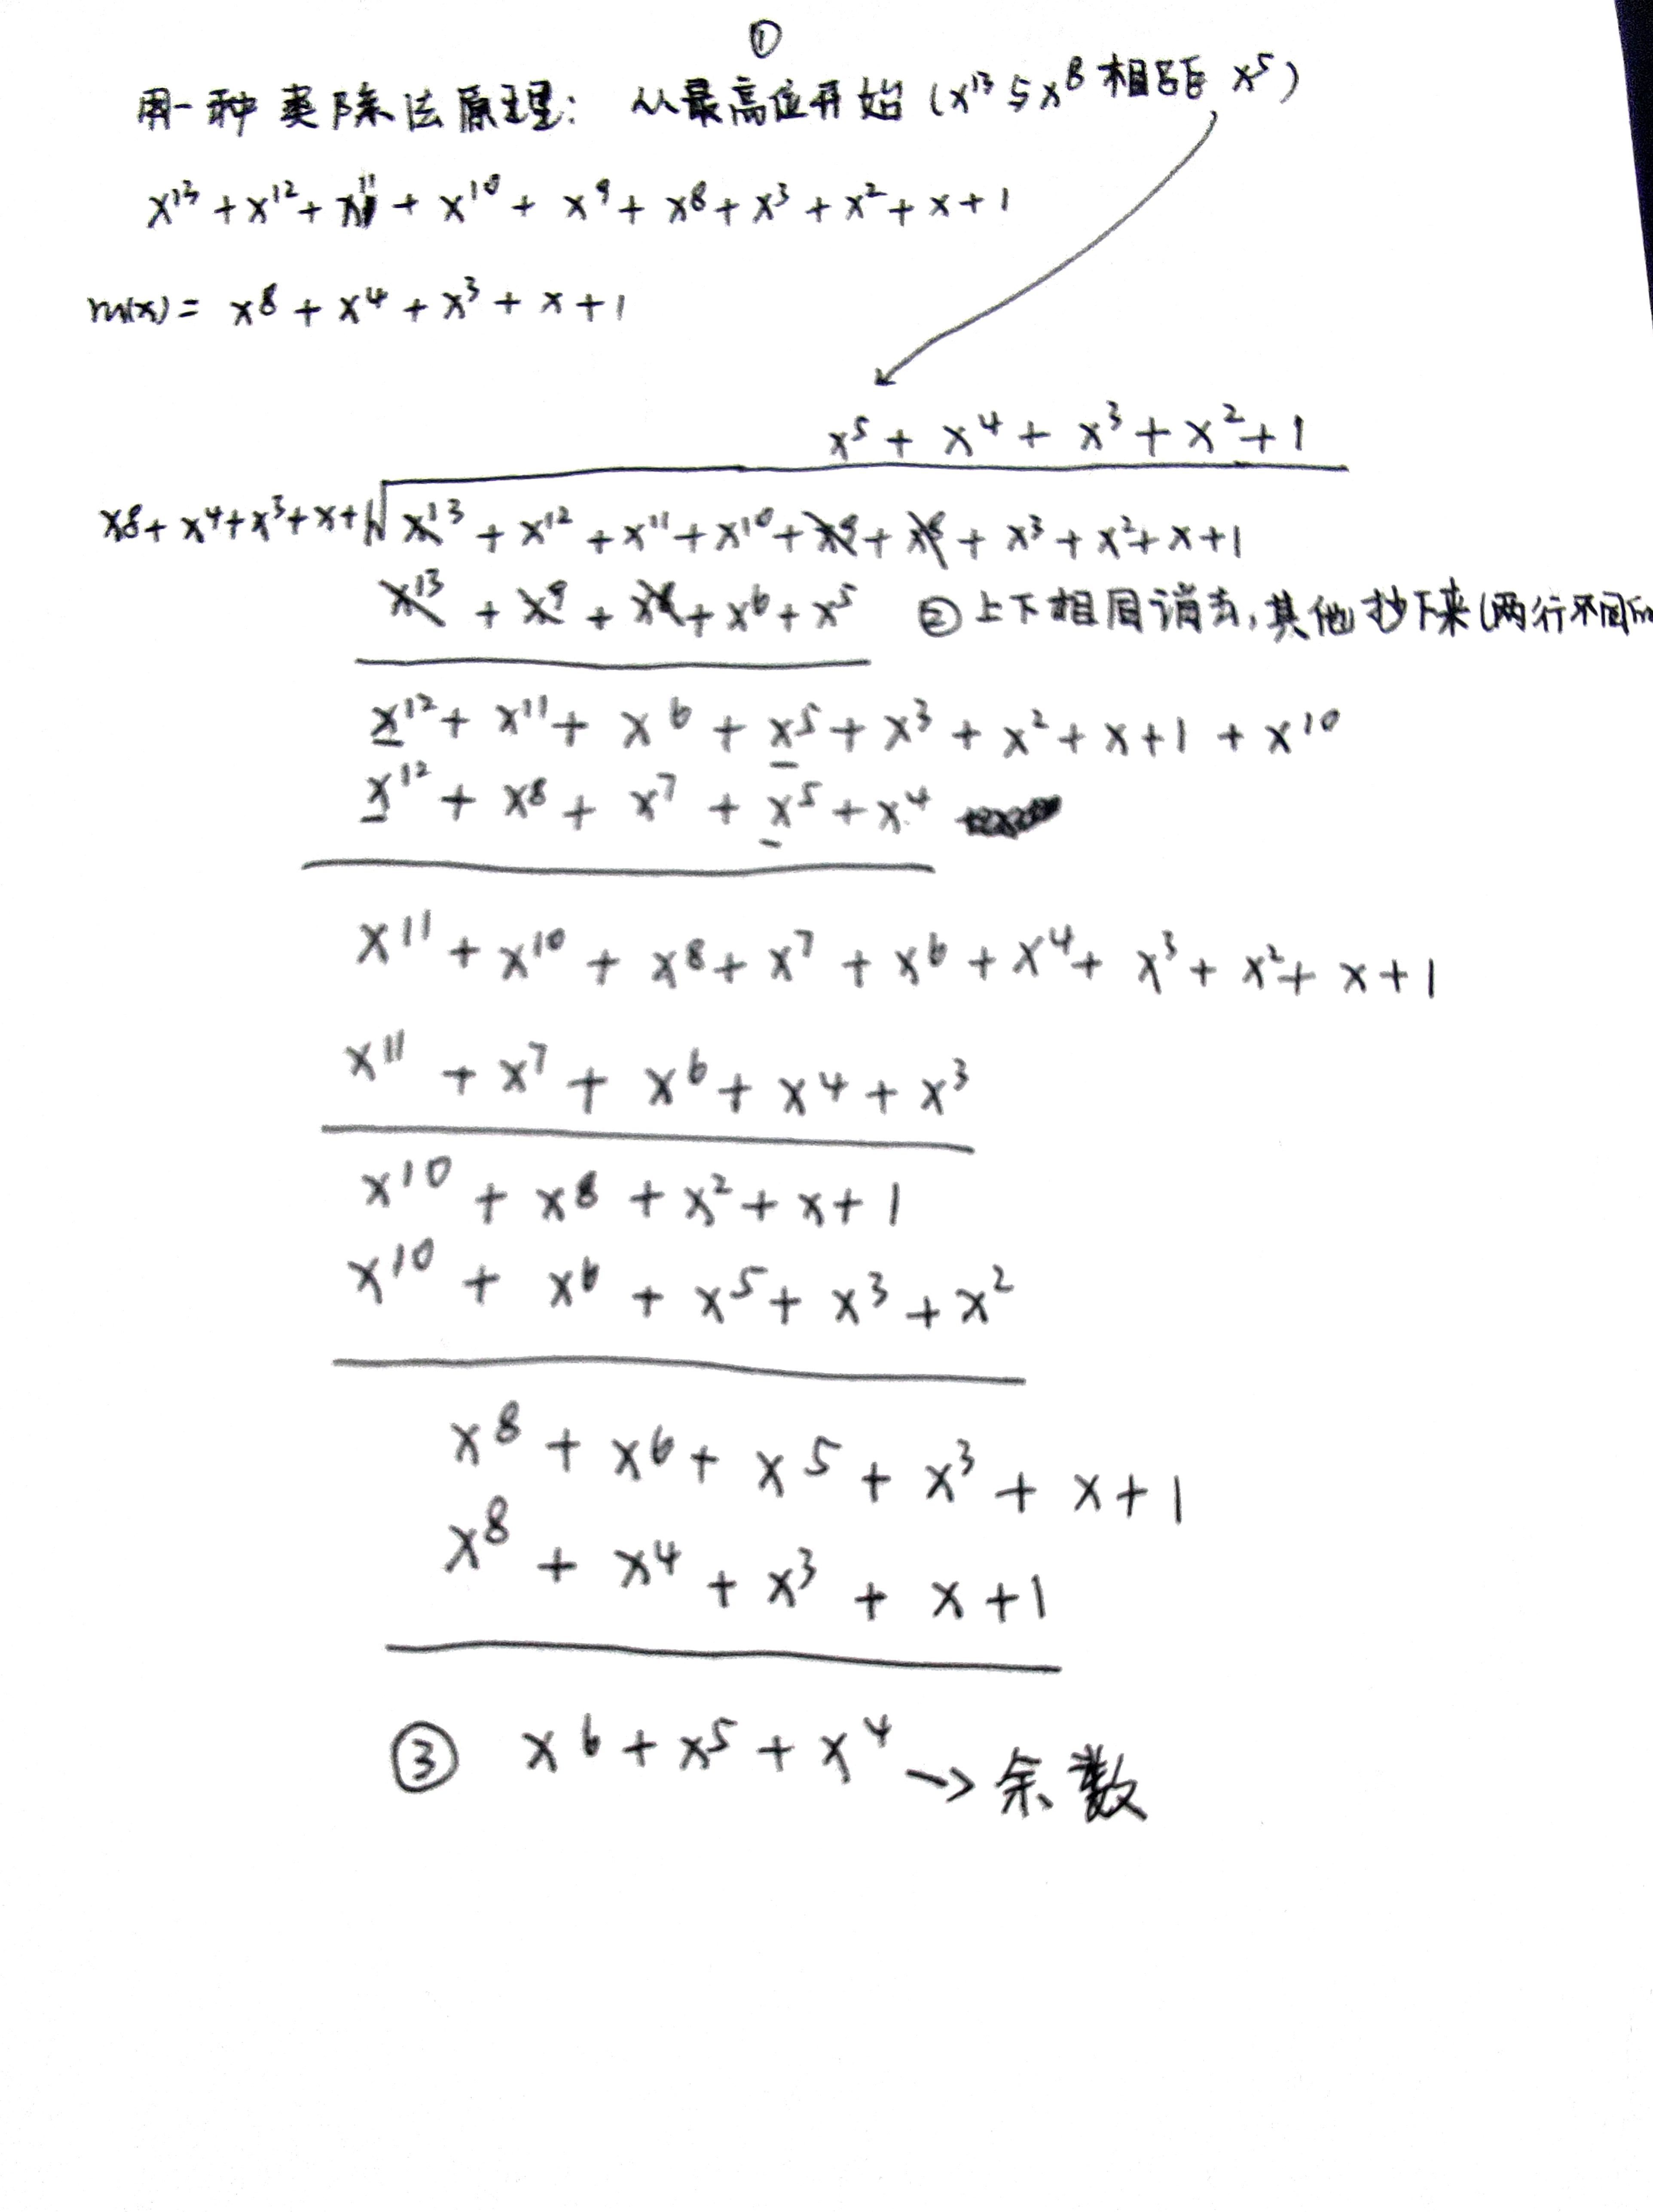 ①
用一种类除法原理: 从最高位开始 (x¹³与x⁸相距 x⁵)
x¹³ + x¹² + x¹¹ + x¹⁰ + x⁹ + x⁸ + x³ + x² + x + 1
m(x) = x⁸ + x⁴ + x³ + x + 1
x⁵ + x⁴ + x³ + x² + 1
x⁸ + x⁴ + x³ + x + 1 √ x¹³ + x¹² + x¹¹ + x¹⁰ + x⁹ + x⁸ + x³ + x² + x + 1
x¹³ + x⁹ + x⁸ + x⁶ + x⁵ ② 上下相同消去, 其他抄下来 (两行不同的
x¹² + x¹¹ + x⁶ + x⁵ + x³ + x² + x + 1 + x¹⁰
x¹² + x⁸ + x⁷ + x⁵ + x⁴
x¹¹ + x¹⁰ + x⁸ + x⁷ + x⁶ + x⁴ + x³ + x² + x + 1
x¹¹ + x⁷ + x⁶ + x⁴ + x³
x¹⁰ + x⁸ + x² + x + 1
x¹⁰ + x⁶ + x⁵ + x³ + x²
x⁸ + x⁶ + x⁵ + x³ + x + 1
x⁸ + x⁴ + x³ + x + 1
③ x⁶ + x⁵ + x⁴ → 余数